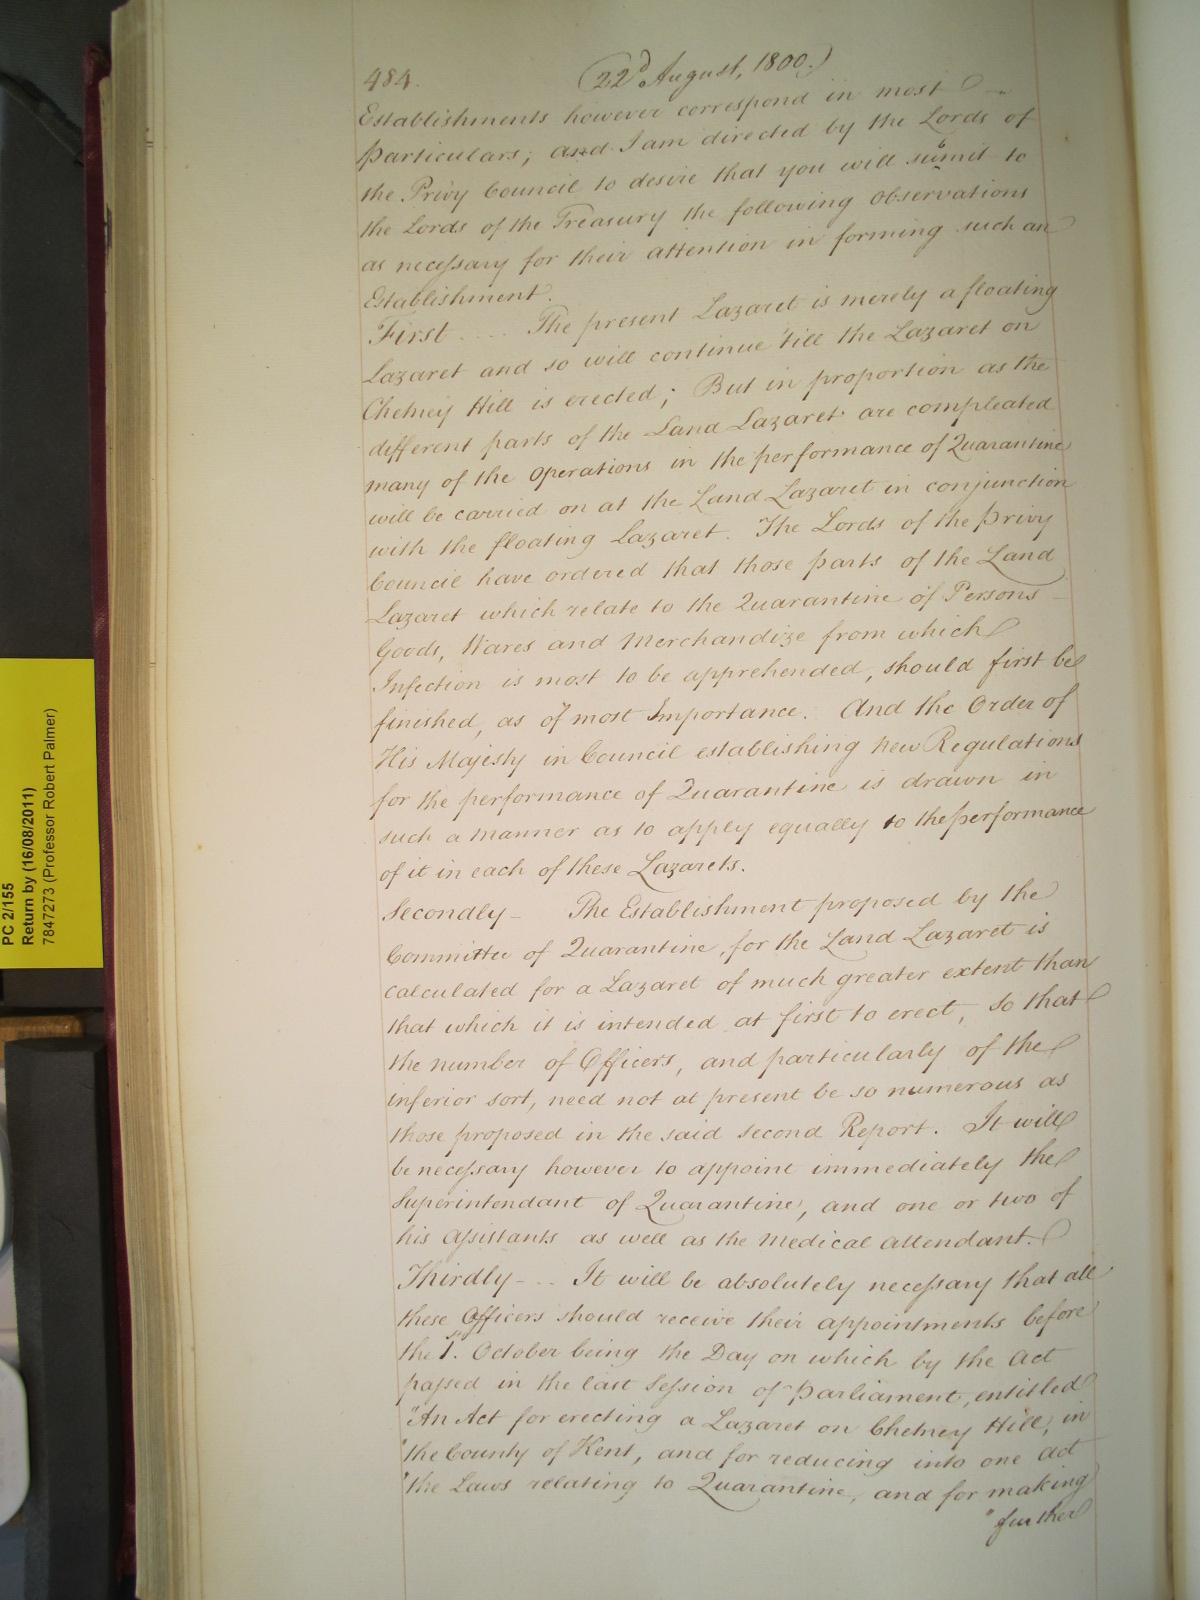 484.
(22d August, 1800.)
Establishments however correspond in most
Particulars; and I am directed by the Lords of
the Privy Council to desire that you will submit to
the Lords of the Treasury the following Observations
as necessary for their attention in forming such an
Establishment.
First .... The present Lazaret is merely a floating
Lazaret and so will continue 'till the Lazaret on
Chetney Hill is erected; But in proportion as the
different parts of the Land Lazaret are compleated
many of the Operations in the performance of Quarantine
will be carried on at the Land Lazaret in conjunction
with the floating Lazaret. The Lords of the Privy
Council have ordered that those parts of the Land
Lazaret which relate to the Quarantine of Persons
Goods, Wares and Merchandize from which
Infection is most to be apprehended, should first be
finished, as of most Importance. And the Order of
His Majesty in Council establishing new Regulations
for the performance of Quarantine is drawn in
such a manner as to apply equally to the performance
of it in each of these Lazarets.
Secondly - The Establishment proposed by the
Committee of Quarantine, for the Land Lazaret is
calculated for a Lazaret of much greater extent than
that which it is intended at first to erect, so that
the number of Officers, and particularly of the
inferior sort, need not at present be so numerous as
those proposed in the said second Report. It will
be necessary however to appoint immediately the
Superintendant of Quarantine, and one or two of
his Assistants as well as the Medical attendant.
Thirdly - .. It will be absolutely necessary that all
these Officers should receive their appointments before
the 1st. October being the Day on which by the Act
passed in the last Session of Parliament, entitled
"An Act for erecting a Lazaret on Chetney Hill, in
"the County of Kent, and for reducing into one Act
"the Laws relating to Quarantine, and for making
"further
PC 2/155
Return by (16/08/2011)
7847273 (Professor Robert Palmer)